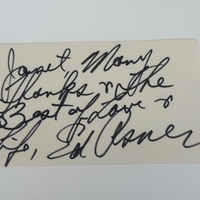 Janet, Many
Thanks & the
Best of Love &
Life, Ed Asner